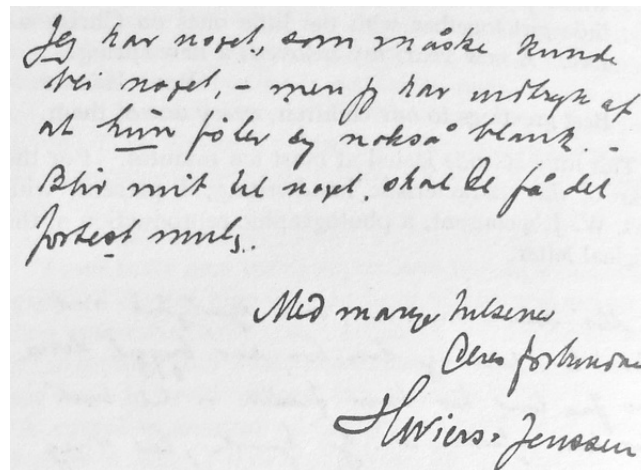 Jeg har noget, som måske kunde
bli noget, – men jeg har indtryk af
at hun føler sig nokså blank. –
Blir mit til noget, skal De få det
fortest mulig.
Med mange hilsener
Deres forbundne
H Wiers-Jenssen